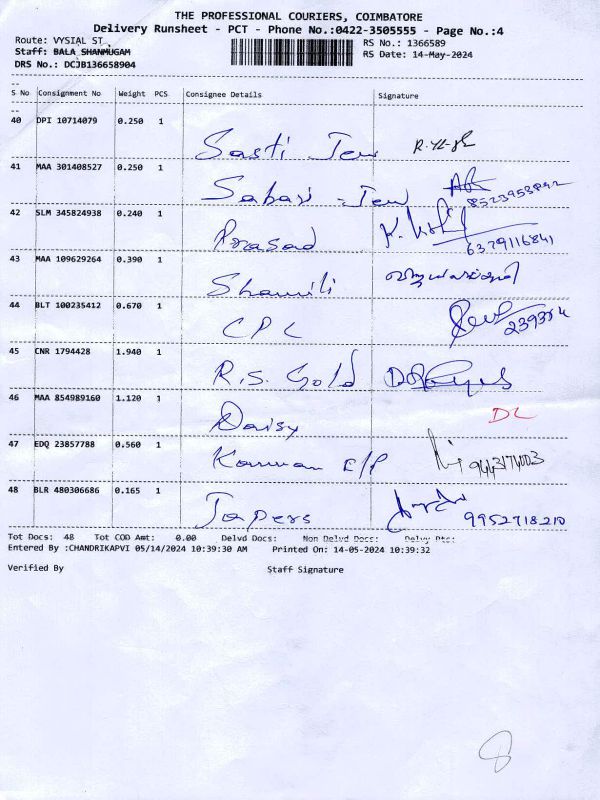 THE PROFESSIONAL COURIERS, COIMBATORE
Delivery Runsheet - PCT - Phone No.:0422-3505555 - Page No.:4
Route: VYSIAL ST RS No.: 1366589
Staff: BALA SHANMUGAM RS Date: 14-May-2024
DRS No.: DCJB136658904
S No Consignment No Weight PCS Consignee Details Signature
40 DPI 10714079 0.250 1 Sasti Jew
41 MAA 301408527 0.250 1 Sabari Jew
42 SLM 345824938 0.240 1 Prasad
6379116841
43 MAA 109629264 0.390 1 Shamili
44 BLT 100235412 0.670 1 CPC
45 CNR 1794428 1.940 1 R.S. Gold
46 MAA 854989160 1.120 1 Daisy DL
47 EDQ 23857788 0.560 1 Kannan E/P
48 BLR 480306686 0.165 1 Tapers 9952718210
Tot Docs: 48 Tot COD Amt: 0.00 Delvd Docs: Non Delvd Docs: Delvy Pts:
Entered By :CHANDRIKAPVI 05/14/2024 10:39:30 AM Printed On: 14-05-2024 10:39:32
Verified By Staff Signature
8